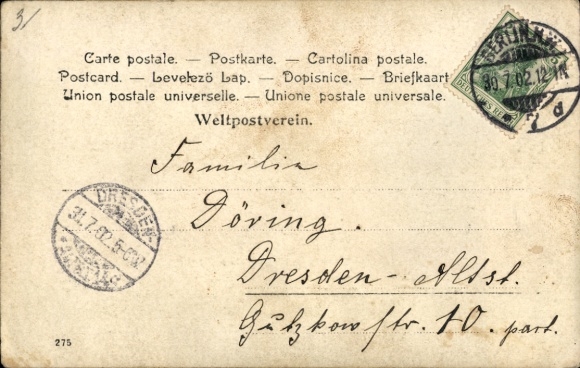 3/
Carte postale. — Postkarte. — Cartolina postale.
Postcard. — Levelező Lap. — Dopisnice. — Briefkaart
Union postale universelle. — Unione postale universale.
Weltpostverein.
BERLIN N.W.
30.7.02.12-1N.
7 d
Familie
Döring.
DRESDEN-
31.7.02.5-6V.
ALTST.
Dresden-Altst.
Gutzkowstr. 10. part.
275